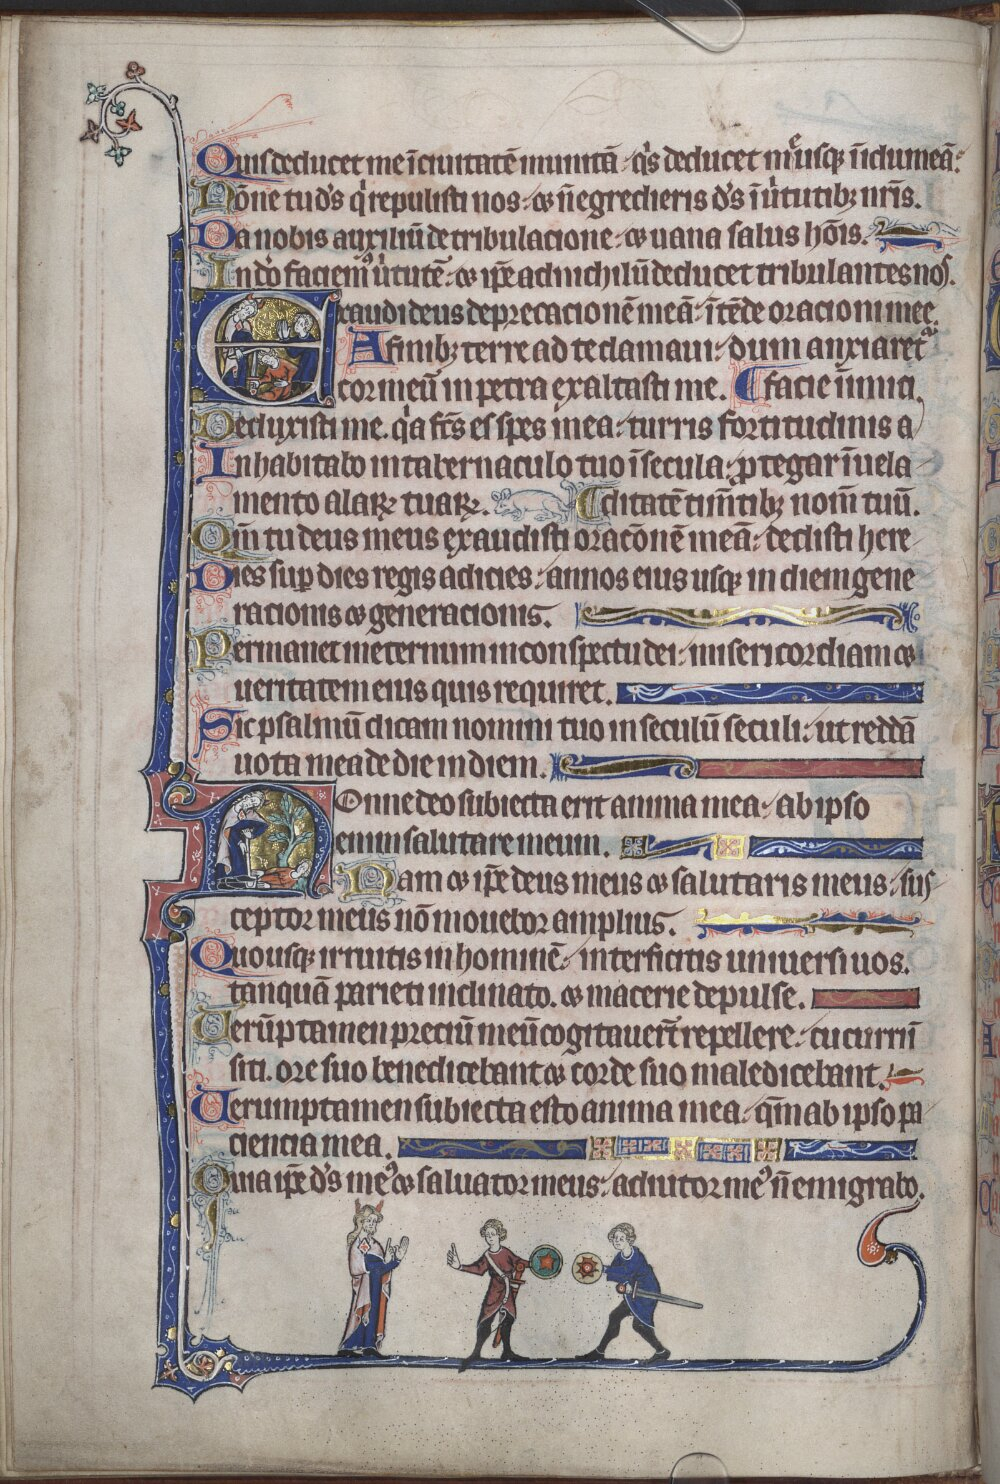 Quis deducet me ī ciuitatē munitā: q's deducet mͤ usq; ī idumeā.
Nōne tu d's q' repulisti nos: & n̄ egredieris d's ī u'tutib; nr̄is.
Da nobis auxiliū de tribulacione: & uana salus hōis.
In d'o faciemꝰ u'tutē: & ip̄e ad nichilū deducet tribulantes nos.
Exaudi deus deprecacionē meā: ītēde oracioni mee.
A finib; terre ad te clamaui: dum anxiaret᷑
cor meū in petra exaltasti me. facie inimici.
Deduxisti me. q'a fc̄s es spes mea: turris fortitudinis a
Inhabitabo in tabernaculo tuo ī secula: ꝓtegar ī uela
mento alaꝝ tuaꝝ. ditatē tim̄tib; nom̄ tuū.
Qm̄ tu deus meus exaudisti orac̄onē meā: dedisti here
Dies sup̄ dies regis adicies: annos eius usq; in diem gene
racionis & generacionis.
Permanet in eternum in conspectu dei: misericordiam &
ueritatem eius quis requiret.
Sic psalmū dicam nomini tuo in seculū seculi: ut reddā
uota mea de die in diem.
Nonne deo subiecta erit anima mea: ab ipso
enim salutare meum.
Nam & ip̄e deus meus & salutaris meus: sus
ceptor meus nō mouebor amplius.
Quousq; irruitis in hominē: interficitis uniuersi uos.
tanquā parieti inclinato. & macerie depulse.
Uerūptamen preciū meū cogitauer̄t repellere: cucurri ī
siti. ore suo benedicebant & corde suo maledicebant.
Uerumptamen subiecta esto anima mea: qm̄ ab ipso pa
ciencia mea.
Quia ip̄e d's meꝰ & saluator meus: adiutor meꝰ n̄ emigrabo.